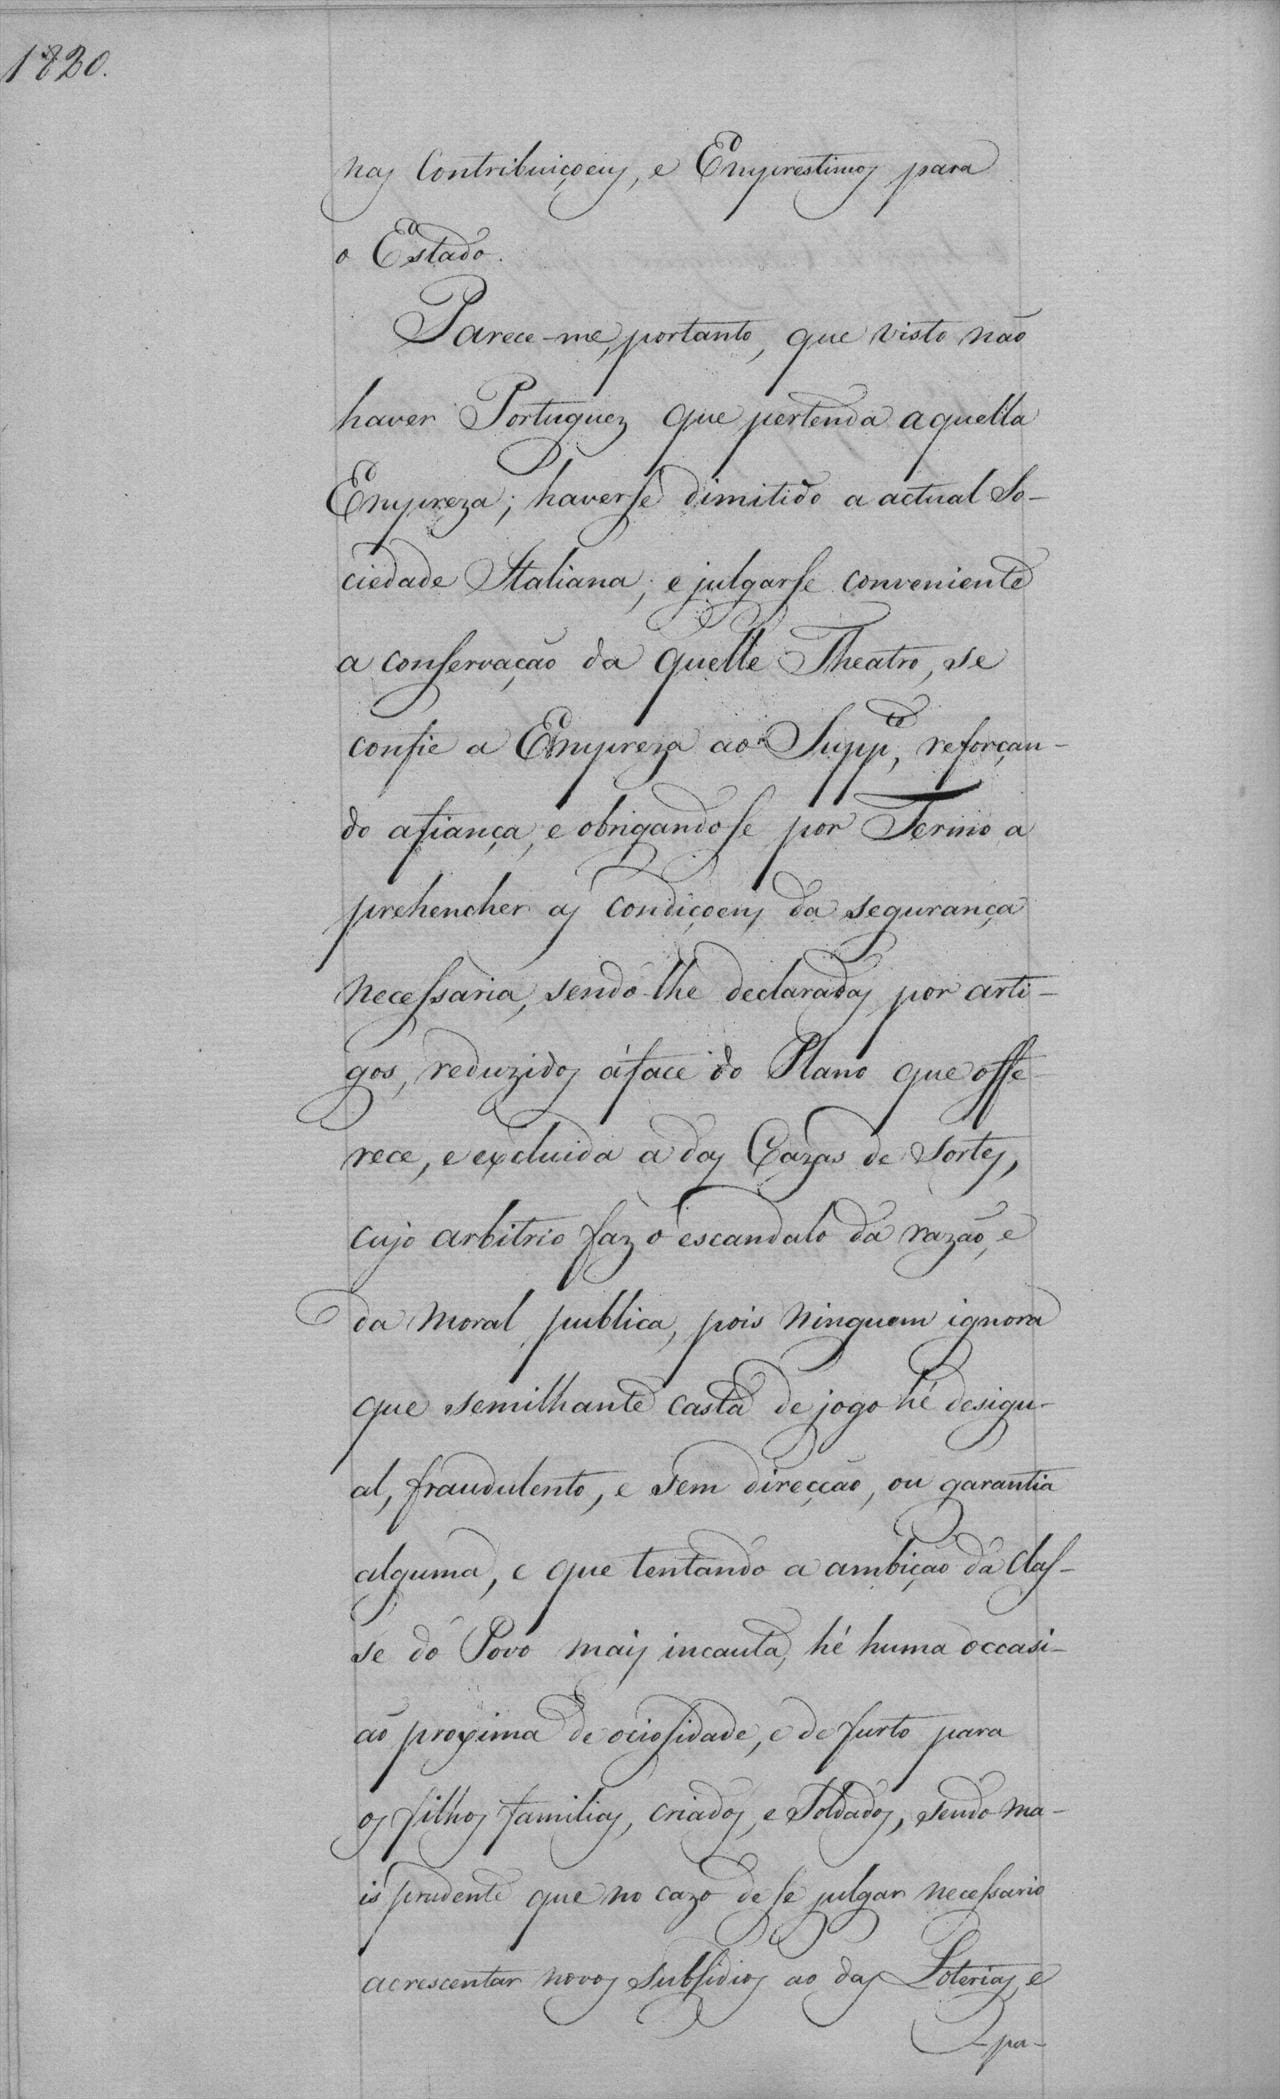 1820.
nas Contribuiçoens, e Emprestimos para
o Estado.
Parece-me, portanto, que visto não
haver Portuguez que pertenda aquella
Empreza; haverse dimitido a actual So-
ciedade Italiana; e julgarse conveniente
a conservação da quelle Theatro, se
confie a Empreza ao Supp.te, reforçan-
do afiança, e obrigandose por Termo a
prehencher as condiçoens da segurança
necessaria, sendo-lhe declaradas por arti-
gos, reduzidos áface do Plano que offe-
rece, e excluida a das Cazas de Sortes,
cujo arbitrio faz o escandalo da razão, e
da moral publica, pois ninguem ignora
que semilhante casta de jogo hé desigu-
al, fraudulento, e sem direcção, ou garantia
alguma, e que tentando a ambição da clas-
se do Povo mais incauta, hé huma occasi-
ão proxima de ociosidade, e de furto para
os filhos familias, criados, e Soldados, sendo ma-
is prudente que no cazo de se julgar necessario
acrescentar novos subsidios ao das Loterias, e
pa-